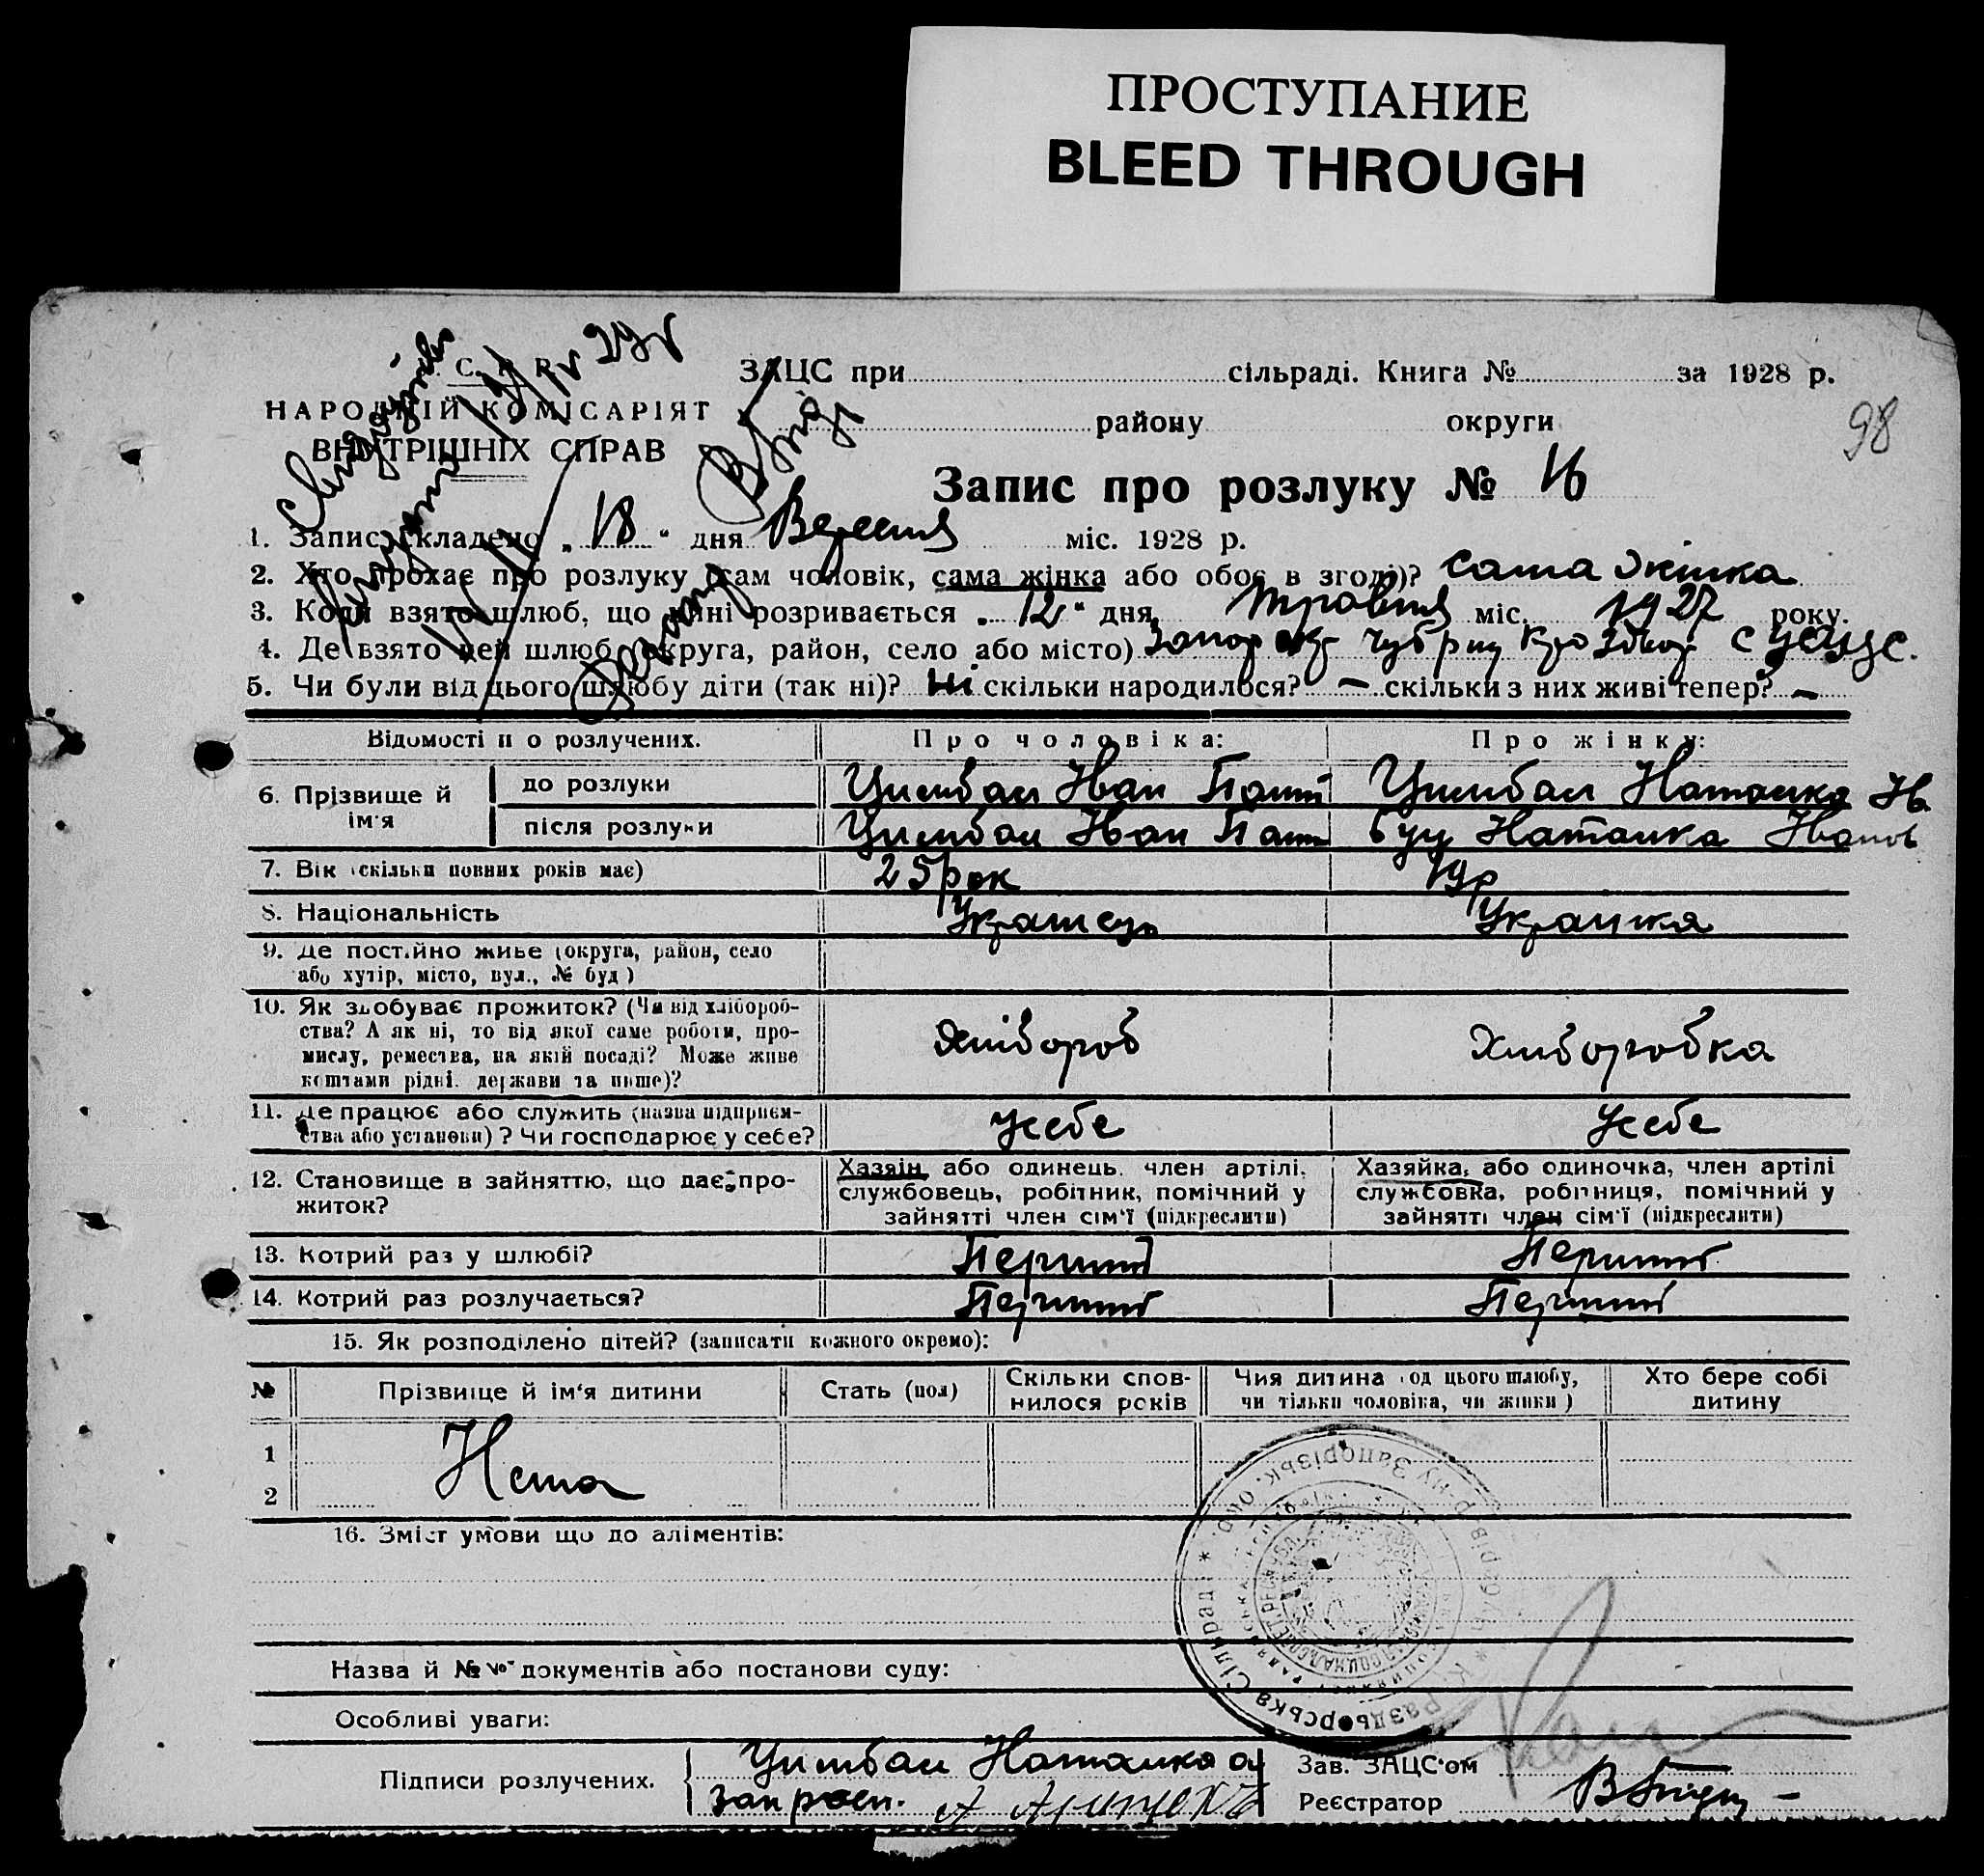 ПРОСТУПАНИЕ
BLEED THROUGH
С. Р. Р.
НАРОДНІЙ КОМІСАРІЯТ
ВНУТРІШНІХ СПРАВ
ЗАЦС при сільраді. Книга № за 1928 р.
району округи
98
Запис про розлуку № 16
1. Запис складено „18“ дня Вересня міс. 1928 р.
2. Хто прохає про розлуку (сам чоловік, сама жінка або обоє в згоді)? сама жінка
3. Коли взято шлюб, що нині розривається „12“ дня травня міс. 1927 року.
4. Де взято цей шлюб (округа, район, село або місто)
5. Чи були від цього шлюбу діти (так ні)? Ні скільки народилося? — скільки з них живі тепер? —
Відомості п о розлучених. Про чоловіка: Про жінку:
6. Прізвище й ім'я
до розлуки Цимбал Іван Цимбал Наталка Ів.
після розлуки Цимбал Іван Наталка Іванов
7. Вік (скільки повних років має) 25 рок 19 р
8. Національність Українець Українка
9. Де постійно живе (округа, район, село
або хутір, місто, вул., № буд)
10. Як здобуває прожиток? (Чи від хлібороб-
ства? А як ні, то від якої саме роботи, про-
мислу, ремества, на якій посаді? Може живе
коштами рідні. держави та инше)?
Хлібороб Хлиборобка
11. Де працює або служить (назва підприєм-
ства або установи)? Чи господарює у себе?
Усебе Усебе
12. Становище в зайняттю, що дає про-
житок?
Хазяїн або одинець. член артілі,
службовець, робітник, помічний у
зайнятті член сім'ї (підкреслити)
Хазяйка, або одиночка, член артілі
службовка, робітниця, помічний у
зайнятті член сім'ї (підкреслити)
13. Котрий раз у шлюбі? Перший Перший
14. Котрий раз розлучається? Перший Перший
15. Як розподілено дітей? (записати кожного окремо):
№ Прізвище й ім'я дитини Стать (пол) Скільки спов-
нилося років Чия дитина (од цього шлюбу,
чи тільки чоловіка, чи жінки) Хто бере собі
дитину
1
2
Нема
16. Зміст умови що до аліментів:
Назва й № документів або постанови суду:
Особливі уваги:
Підписи розлучених. Цимбал Наталка а
Зав. ЗАЦС'ом
Реєстратор